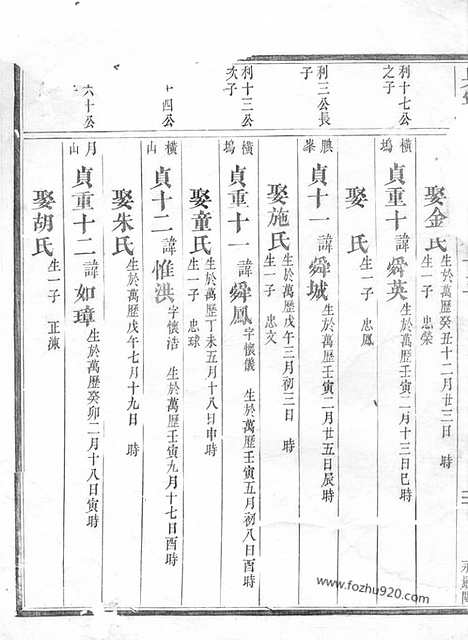 娶金氏 生於萬歷癸丑十二月廿三日 時
生一子 忠榮
利十七公
之子
橫
塢
貞重十 諱舜英 生於萬歷壬寅二月十三日巳時
娶 氏 生一子 忠鳳
利三公長
子
鵬
峯
貞十一 諱舜城 生於萬歷壬寅二月廿五日辰時
娶施氏 生於萬歷戊午三月初三日 時
生一子 忠文
利十三公
次子
橫
塢
貞重十一 諱舜鳳 字懷儀 生於萬歷壬寅五月初八日酉時
娶童氏 生於萬歷丁未五月十八日申時
生一子 忠球
十四公
橫
山
貞十二 諱惟洪 字懷浩 生於萬歷壬寅九月十七日酉時
娶朱氏 生於萬歷戊午七月十九日 時
六十公
月
山
貞重十二 諱如璋 生於萬歷癸卯二月十八日寅時
娶胡氏 生一子 正涑
www.fozhu920.com